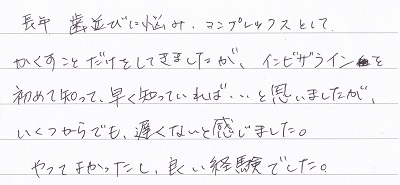 長年 歯並びに悩み、コンプレックスとして
かくすことだけをしてきましたが、インビザラインを
初めて知って、早く知っていれば・・・と思いましたが、
いくつからでも、遅くないと感じました。
やってよかったし、良い経験でした。